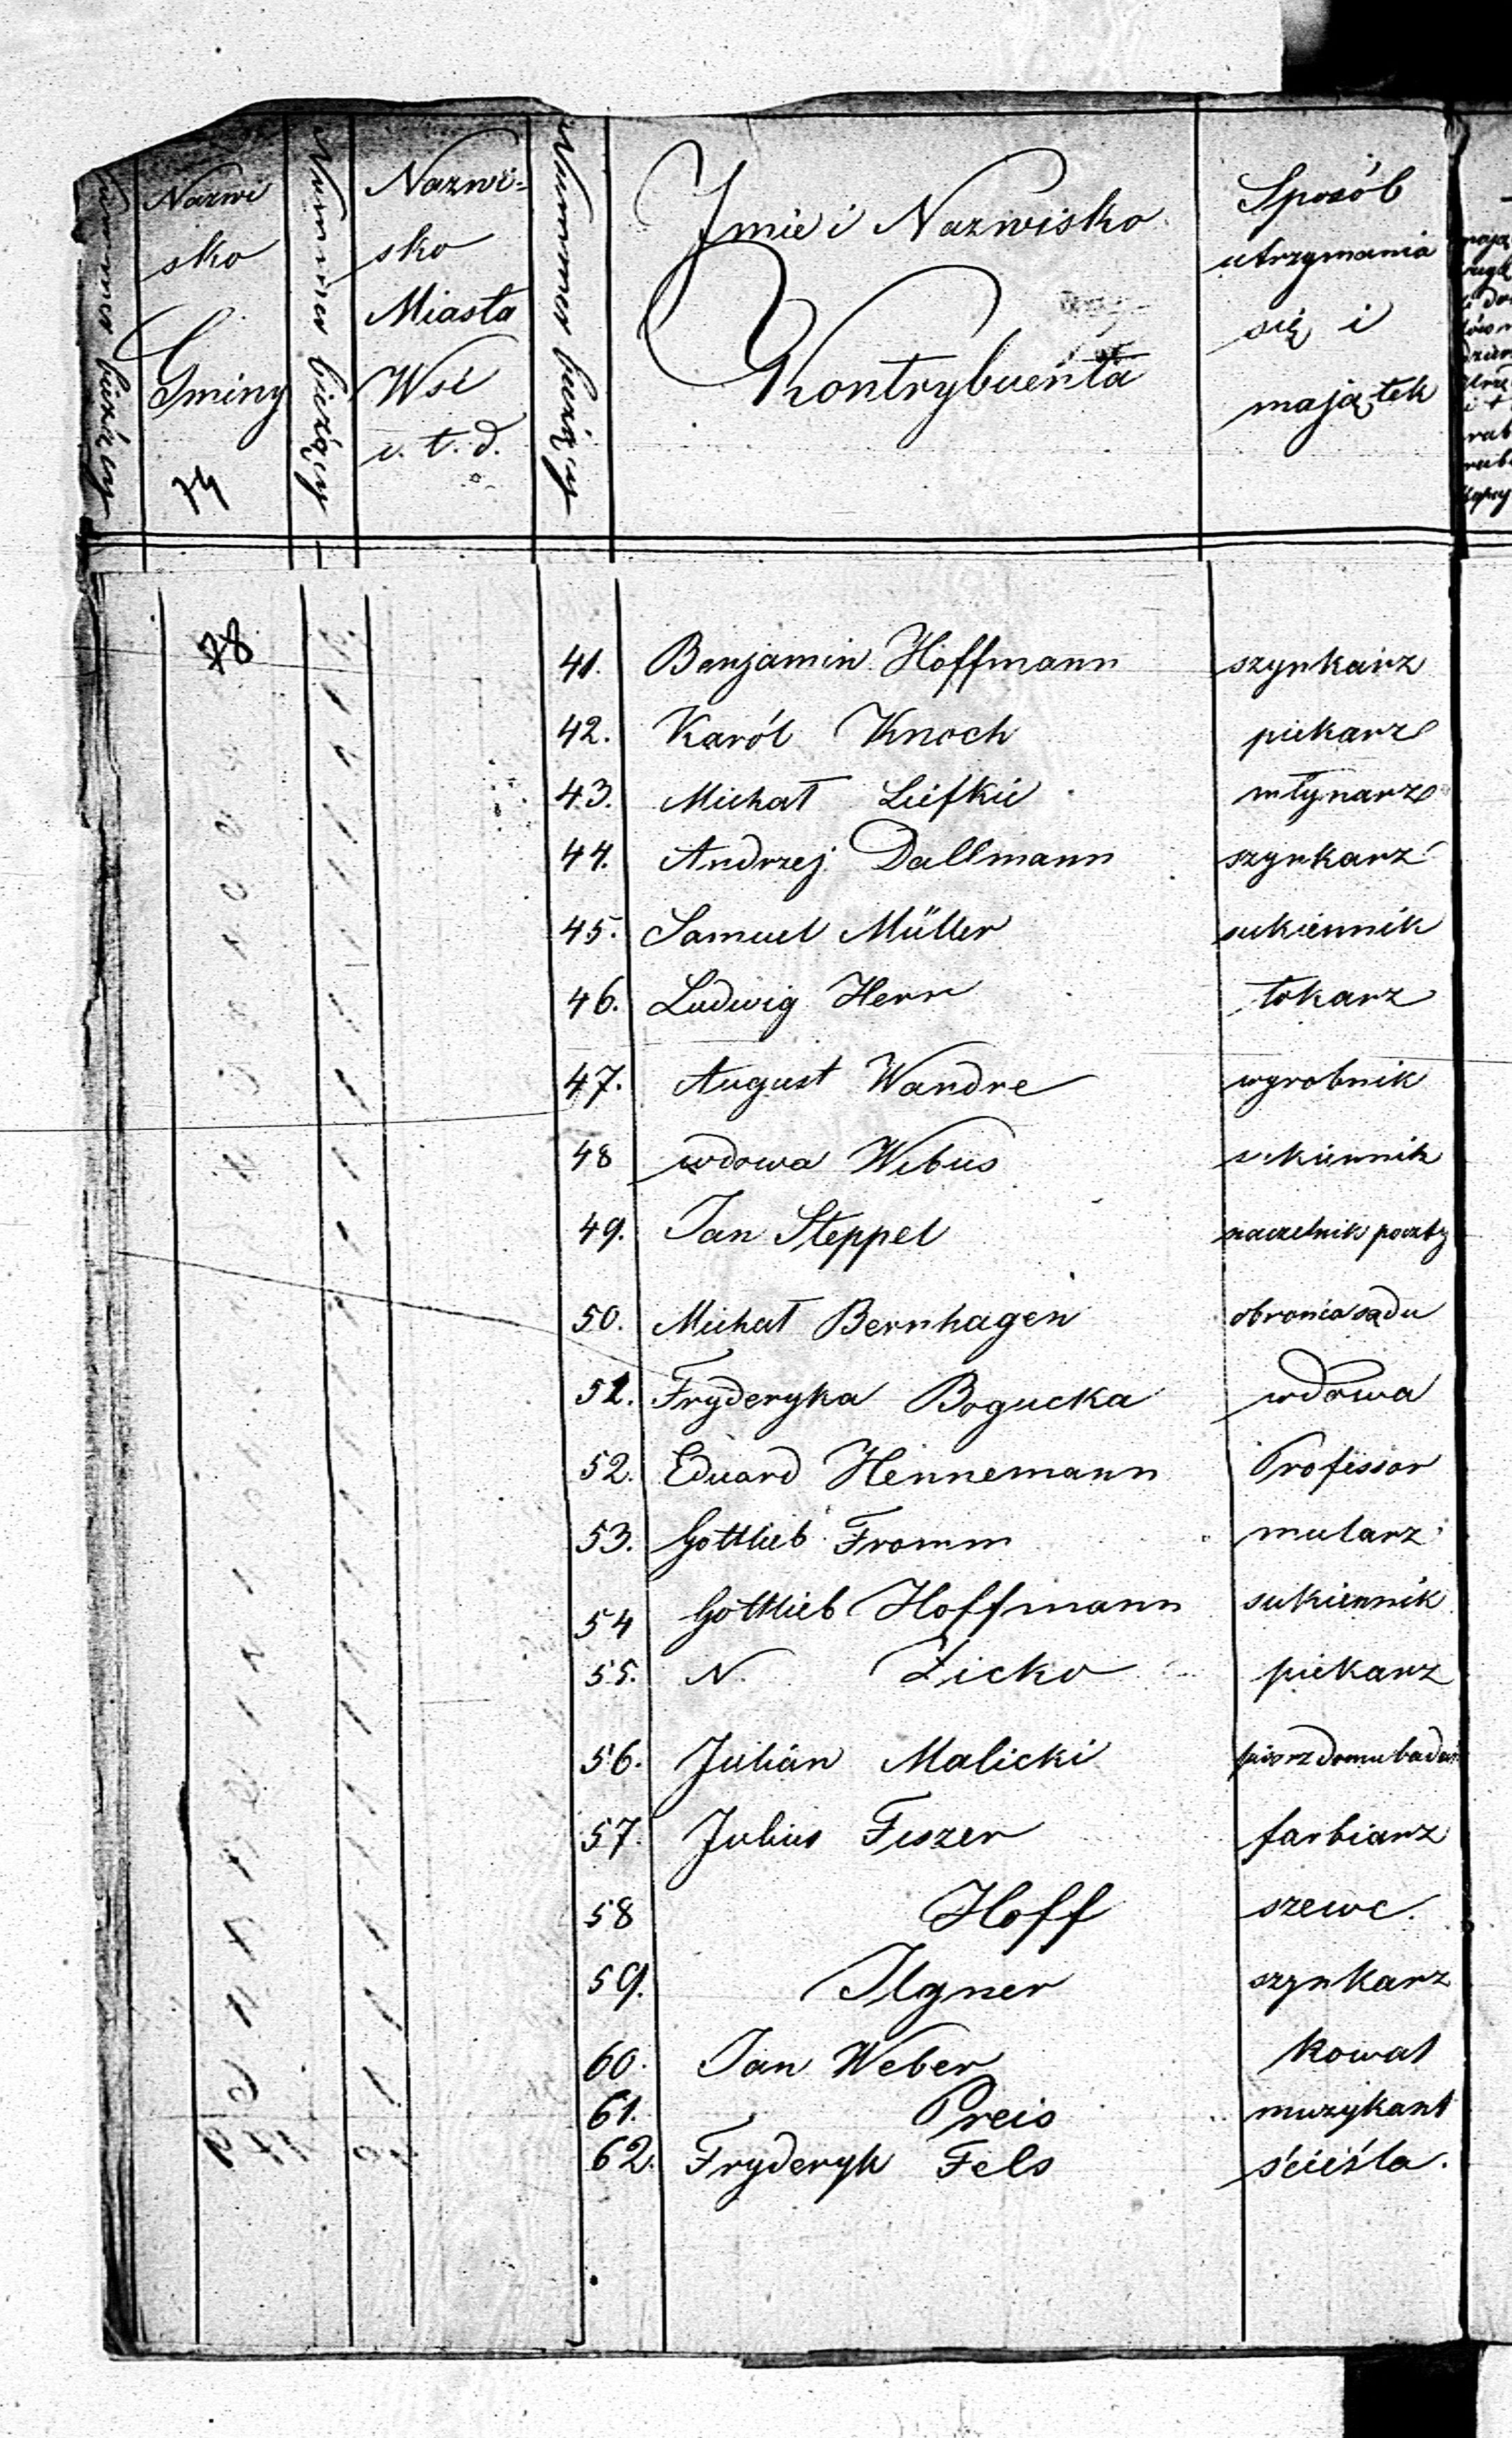 Nummer bieżący
Nazwi
sko
Gminy
74
Nummer bieżący
Nazwi-
sko
Miasta
Wsi
i. t. d.
Nummer bieżący
Imie i Nazwisko
Kontrybuenta
Sposób
utrzymania
się i
majątek
78
41. Benjamin Hoffmann szynkarz
42. Karól Knoch piekarz
43. Michał Liefkie młynarz
44. Andrzej Dallmann szynkarz
45. Samuel Müller sukiennik
46. Ludwig Herr tokarz
47. August Wandre wyrobnik
48 wdowa Wibus sukiennik
49. Jan Steppel naczelnik poczty
50. Michał Bernhagen obronca sądu
51. Fryderyka Bogucka wdowa
52. Eduard Hennemann Professor
53. Gottlieb Fromm mularz
54 Gottlieb Hoffmann sukiennik
55. N. Licko piekarz
56. Julian Malicki pisarz domu badań
57. Julius Fiszer farbiarz
58 Hoff szewc.
59. Ilgner szynkarz
60. Jan Weber kowal
61. Preis muzykant
62. Fryderyk Fels ściéśla.